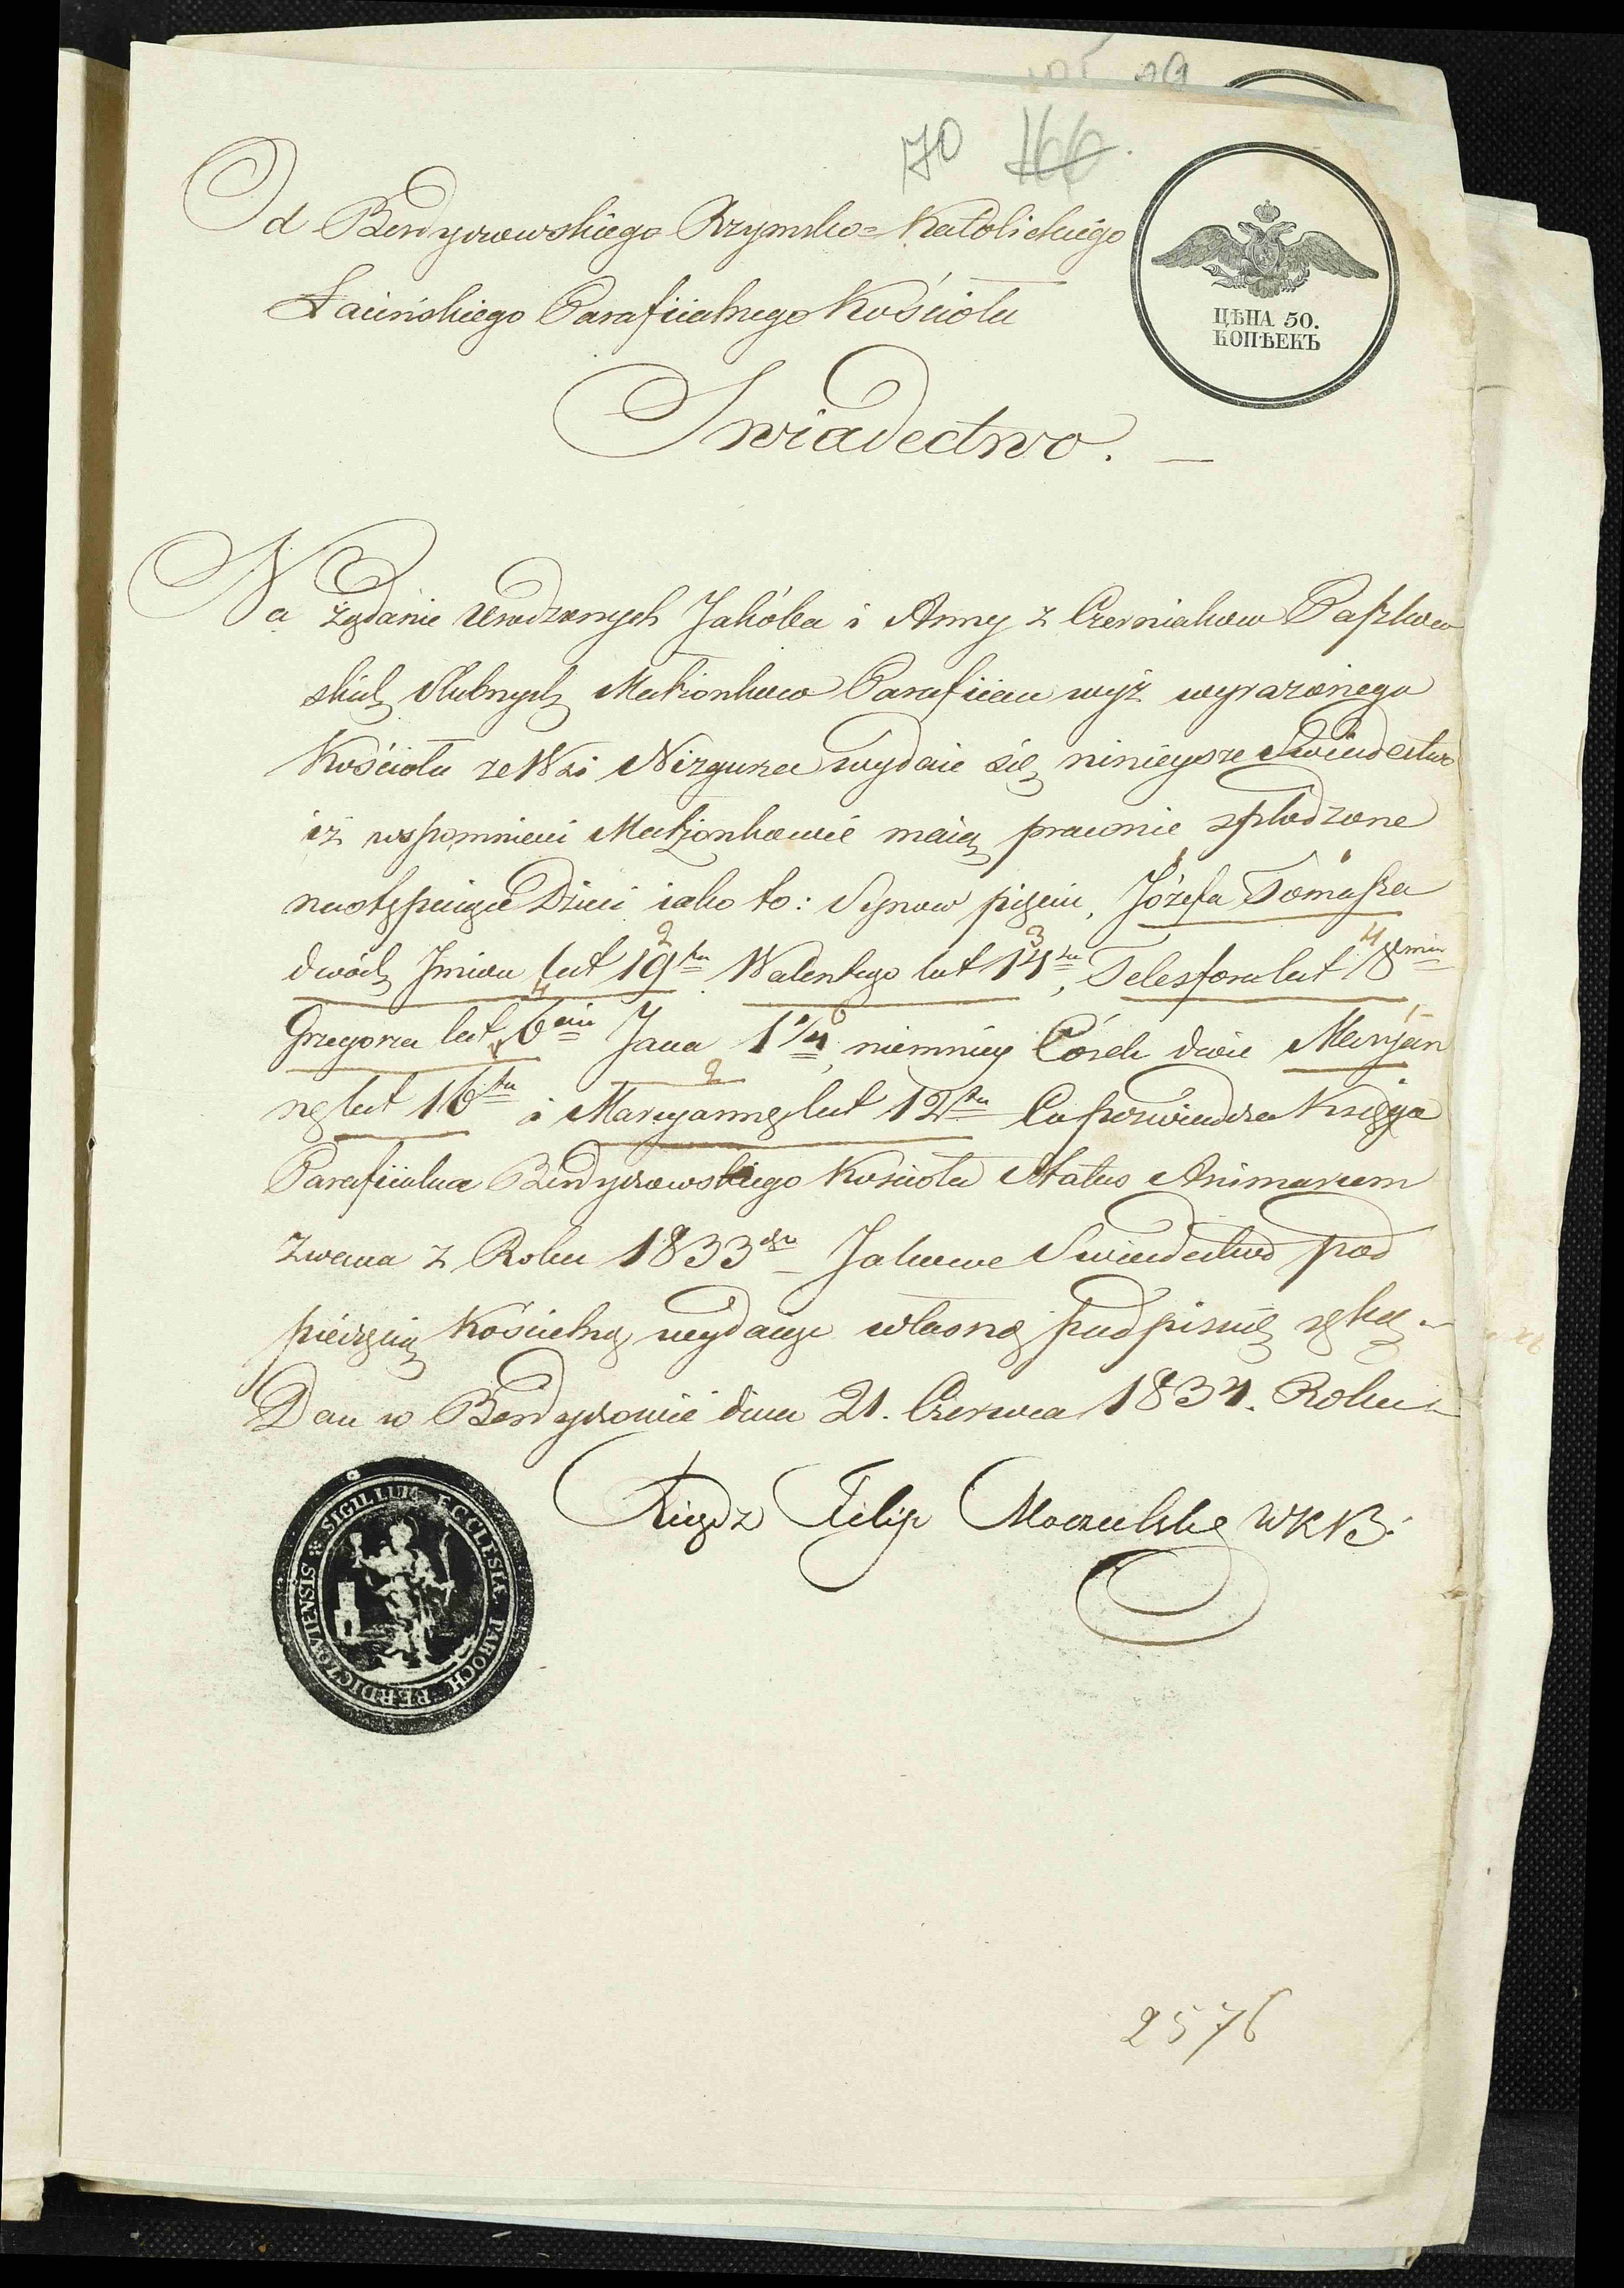 70 166.
Od Berdyczowskiego Rzymsko=Katolickiego
Łacińskiego Parafiialnego Kościoła
ЦѢНА 50.
КОПѢЕКЪ
Swiadectwo. —
Na żądanie Urodzonych Jakóba i Anny z Czerniaków Paszkow
skich Slubnych Małżonków Parafiian wyż wyrażonego
Kościoła ze Wsi Nizgurza wydaie się ninieysze Swiadectwo
iż wspomnieni Małżonkowie maią prawnie spłodzone
następuiące Dzieci iako to: Synow pięciu, Józefa Tomasza
dwóch Jmion lat 19tu Walentego lat 14tu, Telesfora lat 8miu
Grzegorza lat 6ciu Jana 1 1/4, niemniey Córek dwie Maryan
nę lat 16tu i Maryannę lat 12tu Co poświadcza Księga
Parafiialna Berdyczowskiego Kościoła Status Animarum
zwana z Roku 1833go — Jakowe Swiadectwo pod
pieczęcią Kościelną wydaiąc własną podpisuię ręką —
Dan w Berdyczowie dnia 21. Czerwca 1834. Roku —
Xiądz Filip Moczulski WKB.
SIGILLUM ECCLESIÆ PAROCH BERDICZOVIENSIS
2576